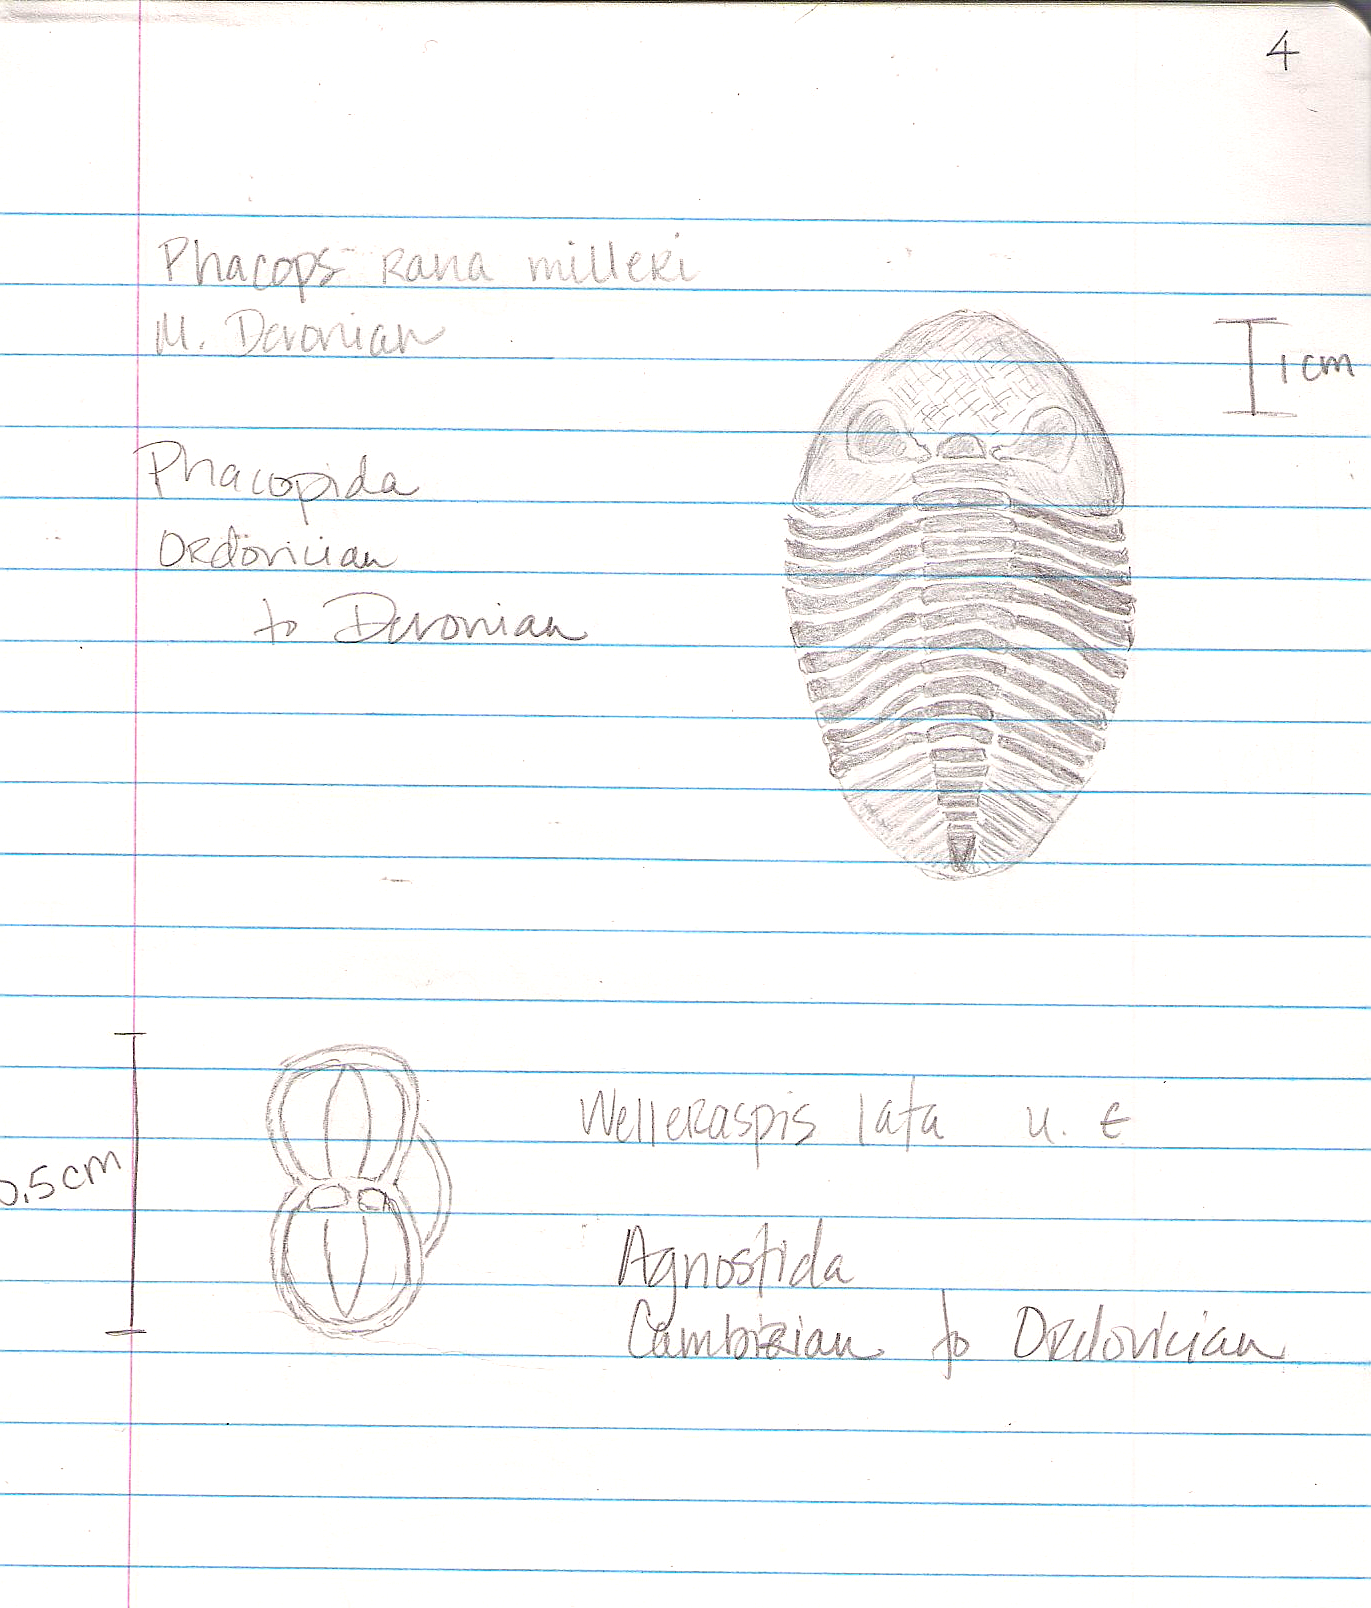 4
Phacops rana milleri
M. Devonian
1 cm
Phacopida
Ordovician
to Devonian
0.5cm
Welleraspis lata u. Є
Agnostida
Cambrian to Ordovician